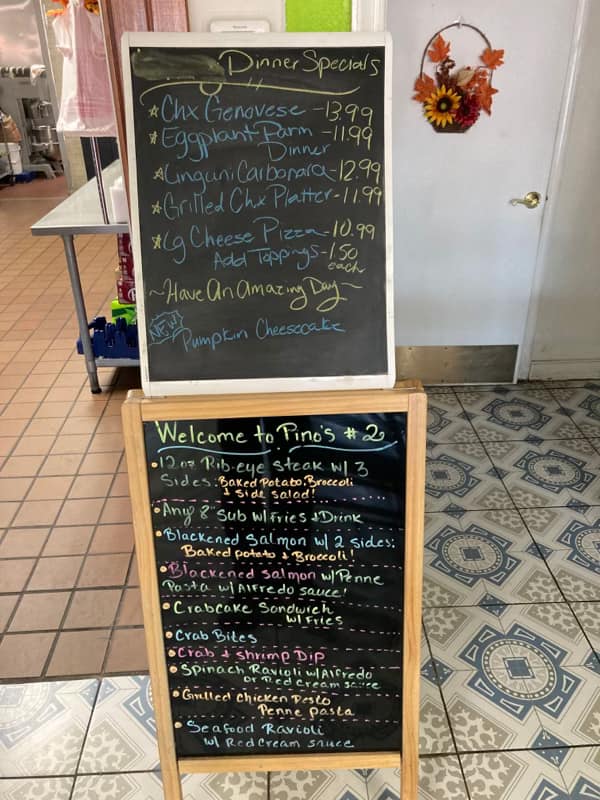 Dinner Specials
Chx Genovese - 13.99
Eggplant Parm - 11.99
Dinner
Linguni Carbonara - 12.99
Grilled Chx Platter - 11.99
Lg Cheese Pizza - 10.99
Add Toppings - 1.50
each
~Have An Amazing Day~
NEW
Pumpkin Cheesecake
Welcome to Pino's #2
12oz Rib-eye steak w/ 3
Sides: Baked Potato, Broccoli
+ Side salad!
Any 8" Sub w/ Fries + Drink
Blackened Salmon w/ 2 sides:
Baked potato + Broccoli!
Blackened Salmon w/ Penne
Pasta w/ Alfredo sauce!
Crabcake Sandwich
w/ Fries
Crab Bites
Crab + shrimp Dip
Spinach Ravioli w/ Alfredo
or Red Cream sauce
Grilled Chicken Pesto
Penne pasta
Seafood Ravioli
w/ Red Cream sauce